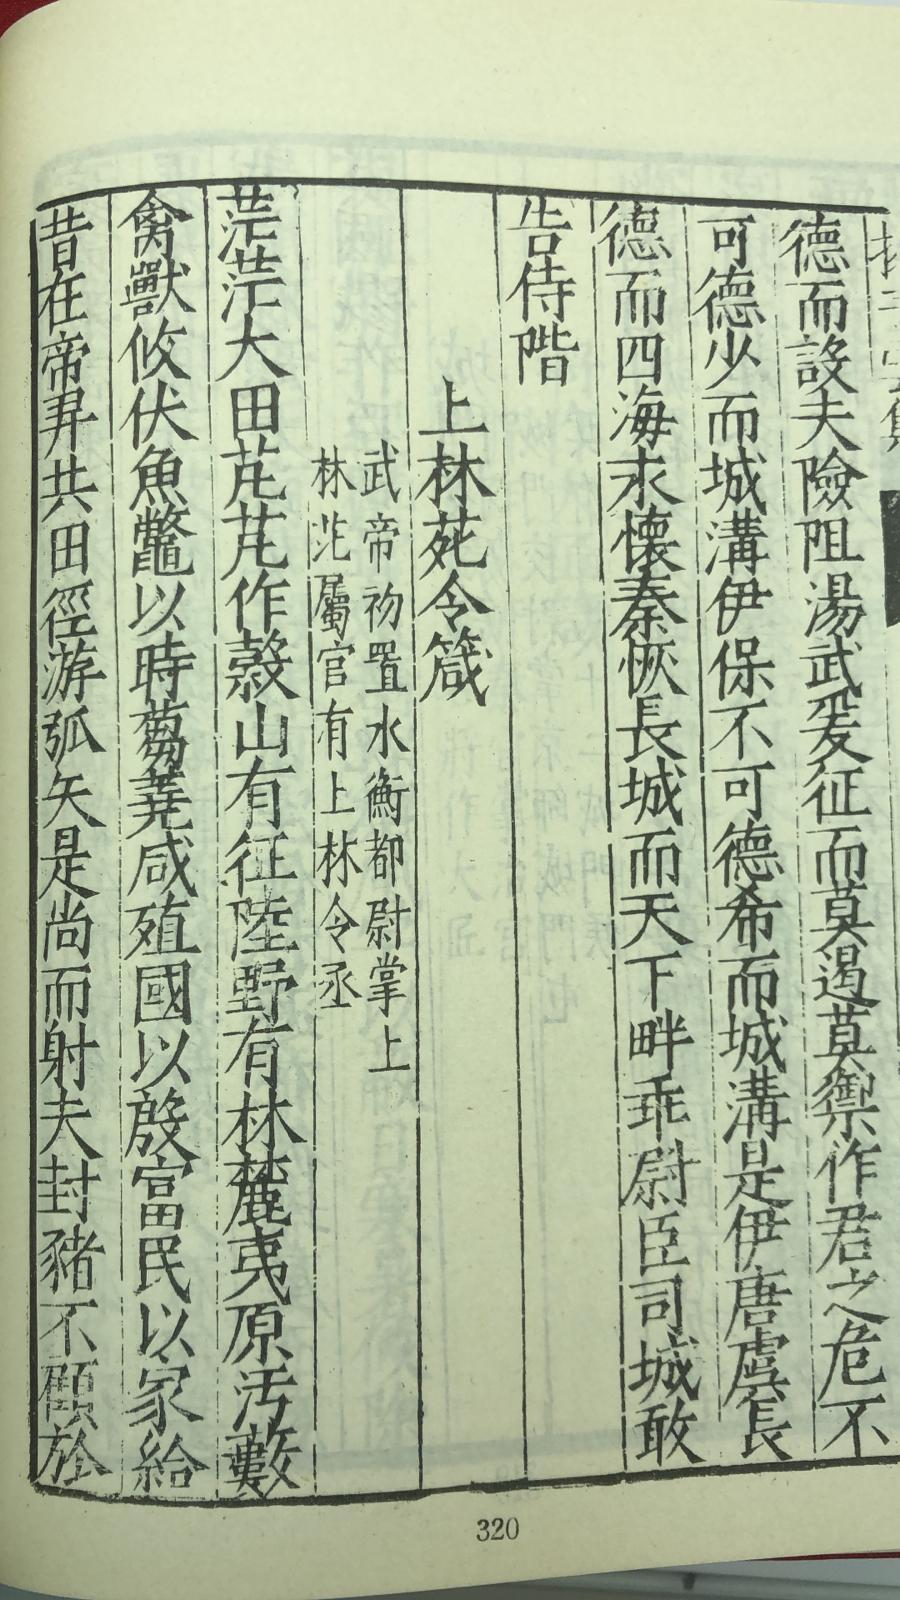 德而設夫險阻湯武爰征而莫遏莫禦作君之危不
可德少而城溝伊保不可德希而城溝是伊唐虞長
德而四海永懷秦恢長城而天下畔乖尉臣司城敢
告侍階
上林苑令箴
武帝初置水衡都尉掌上
林苑屬官有上林令丞
茫茫大田芃芃作穀山有征陸野有林麓夷原汚藪
禽獸攸伏魚鼈以時蒭蕘咸殖國以殷富民以家給
昔在帝羿共田徑游弧矢是尚而射夫封豬不顧於
320